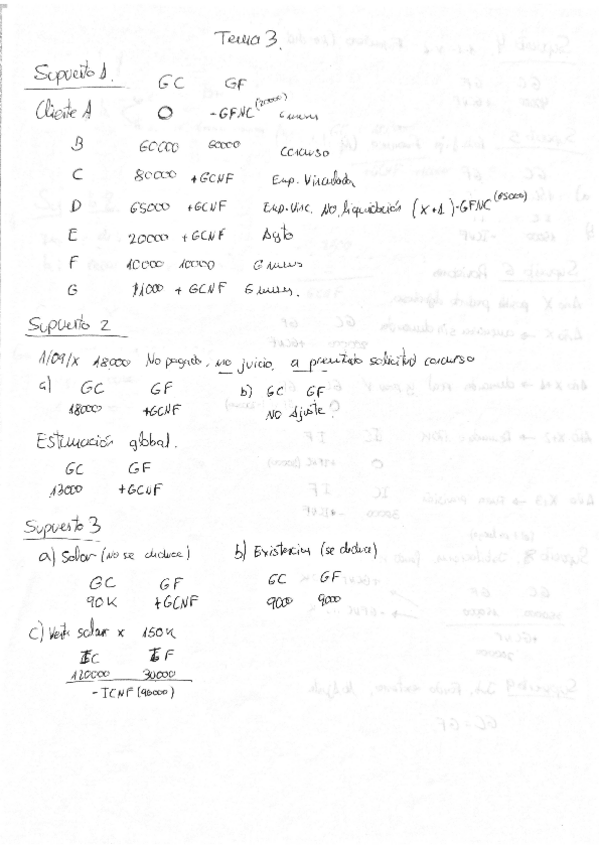 Tema 3.
Supuesto 1. GC GF
Cliente A 0 -GFNC (20000) 6 meses
B 60000 60000 concurso
C 80000 +GCNF Emp. Vinculada
D 65000 +GCNF Emp. Vinc. NO liquidación (X+1) -GFNC (65000)
E 20000 +GCNF Ayto
F 10000 10000 6 meses
G 11000 + GCNF 6 meses.
Supuesto 2
1/09/X 18.000 No pagado, no juicio, a solicitud concurso
a) GC GF b) GC GF
18000 +GCNF NO Ajuste?
Estimación global.
GC GF
13000 +GCNF
Supuesto 3
a) Solar (No se deduce) b) Existencias (se deduce)
GC GF GC GF
90K +GCNF 9000 9000
c) Venta solar x 150K
IC IF
120000 30000
-ICNF (90000)